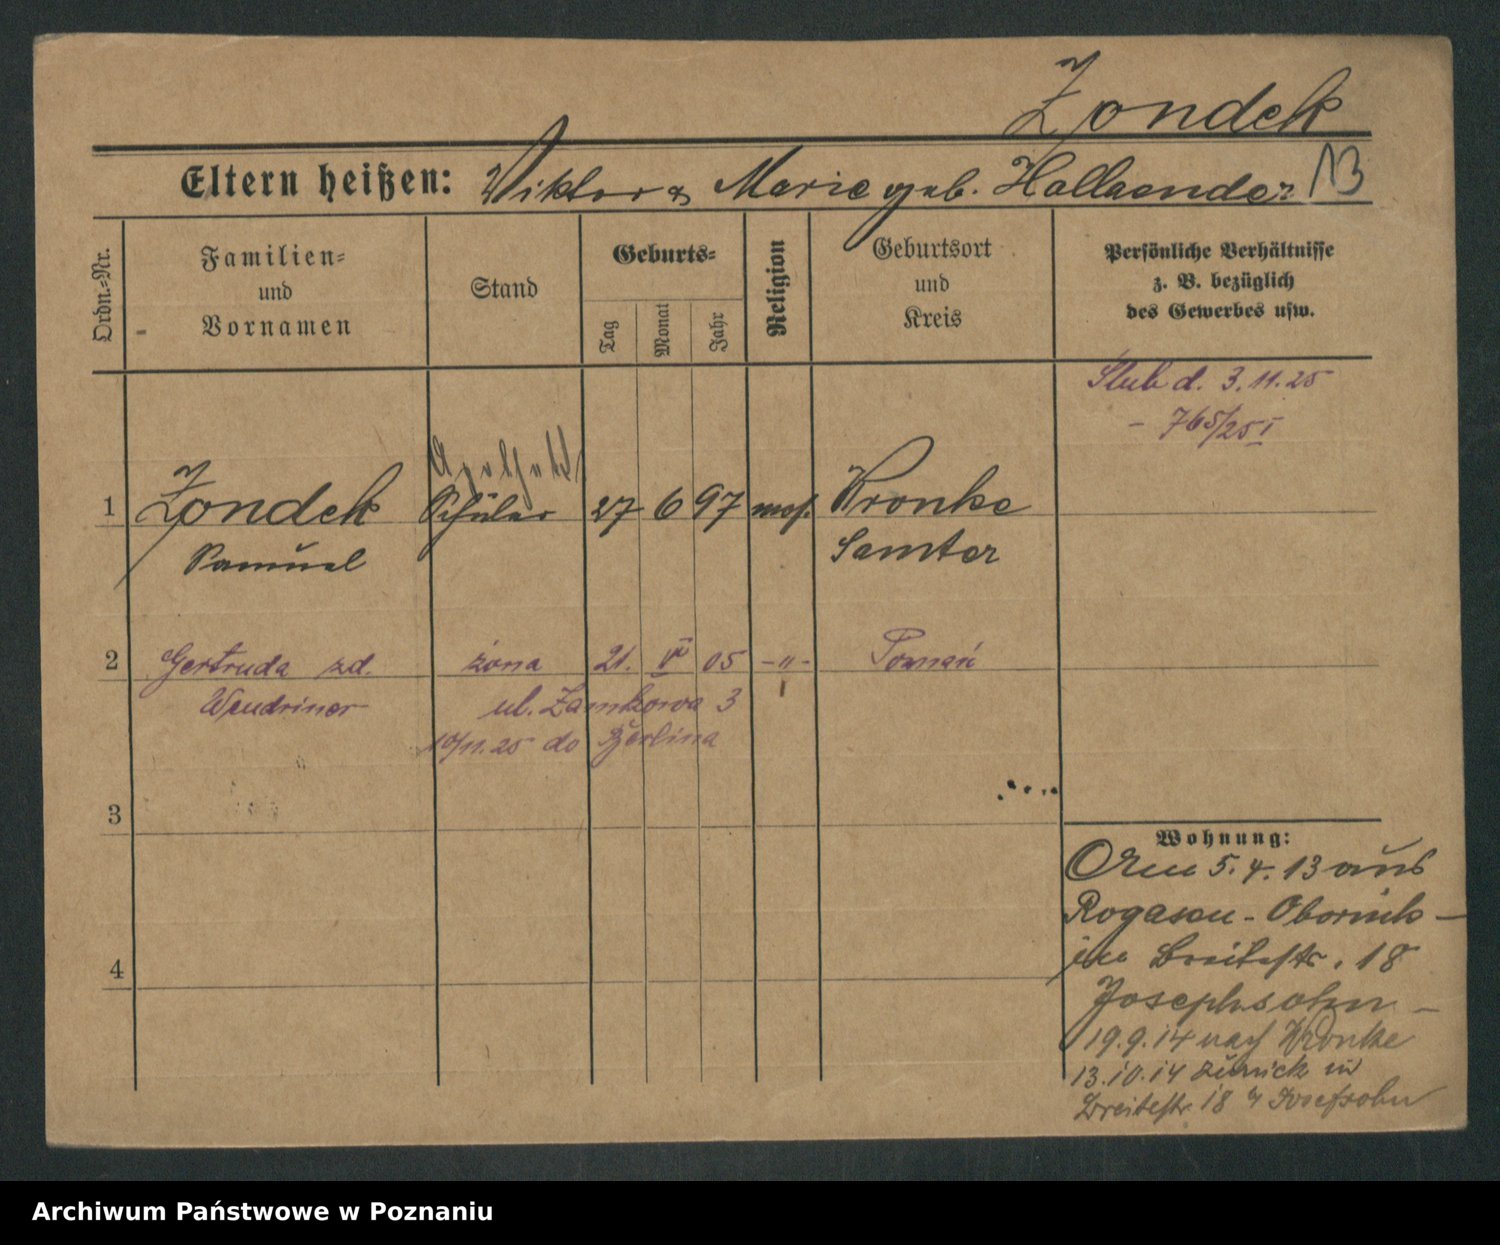 Zondek
Eltern heißen: Wiktor & Marie geb. Hollaender 13
Ordn.-Nr.
Familien-
und
Vornamen
Stand
Geburts-
Tag
Monat
Jahr
Religion
Geburtsort
und
Kreis
Persönliche Verhältnisse
z. B. bezüglich
des Gewerbes usw.
Ślub d. 3.11.25
- 765/25 I
1 Zondek Schüler 27 6 97 mos. Wronke
Samuel Samter
2 Gertruda zd. żona 21. 05 -"- Poznań
Wendriner ul. Zamkowa 3
10/11.25 do Berlina
3
4
Wohnung:
Am 5.4.13 aus
Rogasen - Obornik -
in Breitestr. 18
Josephsohn -
19.9.14 nach Wronke
13.10.14 zurück in
Breitestr. 18 Josefsohn
Archiwum Państwowe w Poznaniu